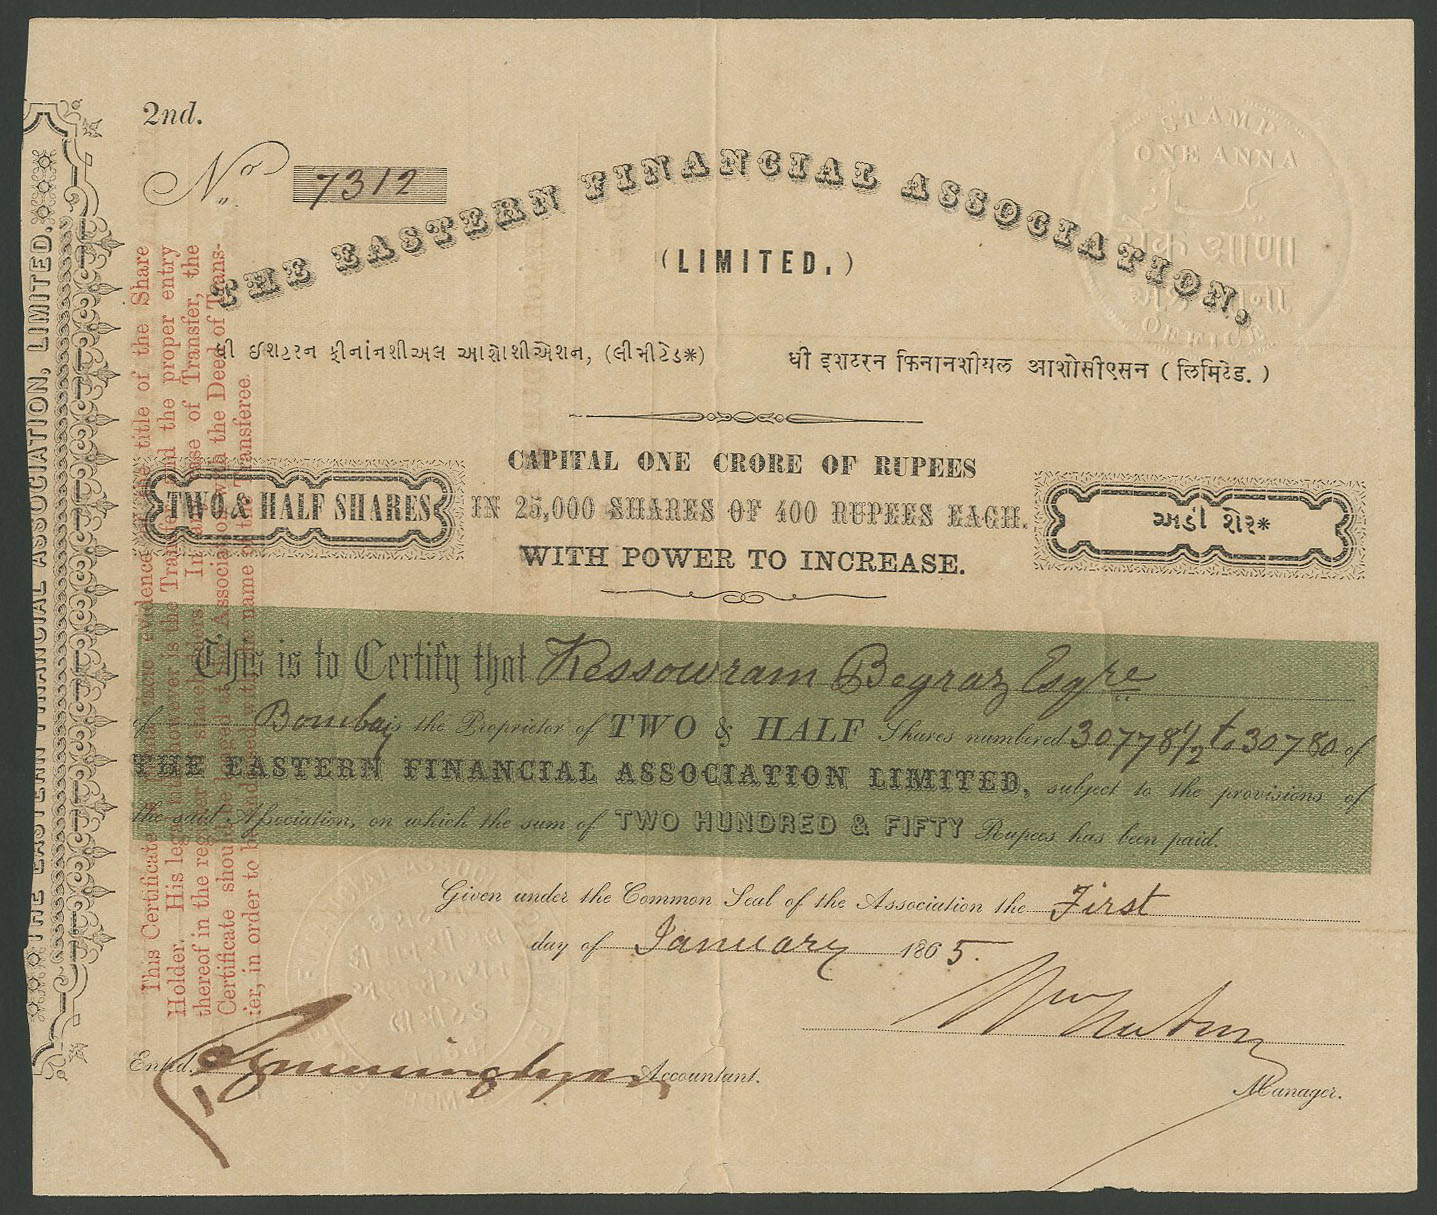 2nd.
No. 7312
THE EASTERN FINANCIAL ASSOCIATION,
(LIMITED.)
STAMP
ONE ANNA
એક આના
OFFICE
ધી ઈશટરન ફીનાંનશીઅલ આશોશીએશન, (લીમીટેડ*)
धी इशटरन फिनानशीयल आशोसीएसन ( लिमिटेड. )
CAPITAL ONE CRORE OF RUPEES
TWO & HALF SHARES
IN 25,000 SHARES OF 400 RUPEES EACH.
અડી શેર*
WITH POWER TO INCREASE.
This is to Certify that Kessowram Begraz Esqre
of Bombay is the Proprietor of TWO & HALF Shares numbered 30778½ to 30780 of
THE EASTERN FINANCIAL ASSOCIATION LIMITED, subject to the provisions of
the said Association, on which the sum of TWO HUNDRED & FIFTY Rupees has been paid.
Given under the Common Seal of the Association the First
day of January 1865.
Entd. Accountant.
Manager.
THE EASTERN FINANCIAL ASSOCIATION, LIMITED.
This Certificate is evidence of the title of the Share
Holder. His legal however is the Transfer and the proper entry
thereof in the register of shareholders. In case of Transfer, the
Certificate should be lodged at the Association with the Deed of Trans-
fer, in order to be endorsed with the name of the Transferee.